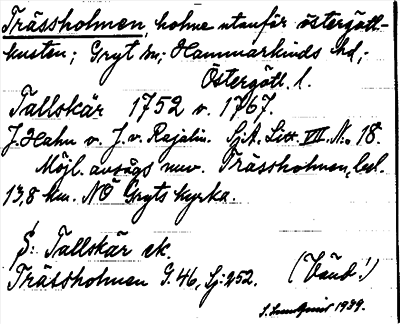 Trässholmen, holme utanför östergötl-
kusten; Gryt sn; Hammarkinds hd;
Östergötl. l.
Tallskär 1752 v. 1767.
J. Hahn v. J. v. Rajalin. SjA. Litt. VII. N. 18.
Möjl. avsågs nuv. Trässholmen, bel.
13,8 km. NÖ Gryts kyrka.
S: Tallskär ek.
Trässholmen G. 46, Sj: 252. (Vänd!)
1939.